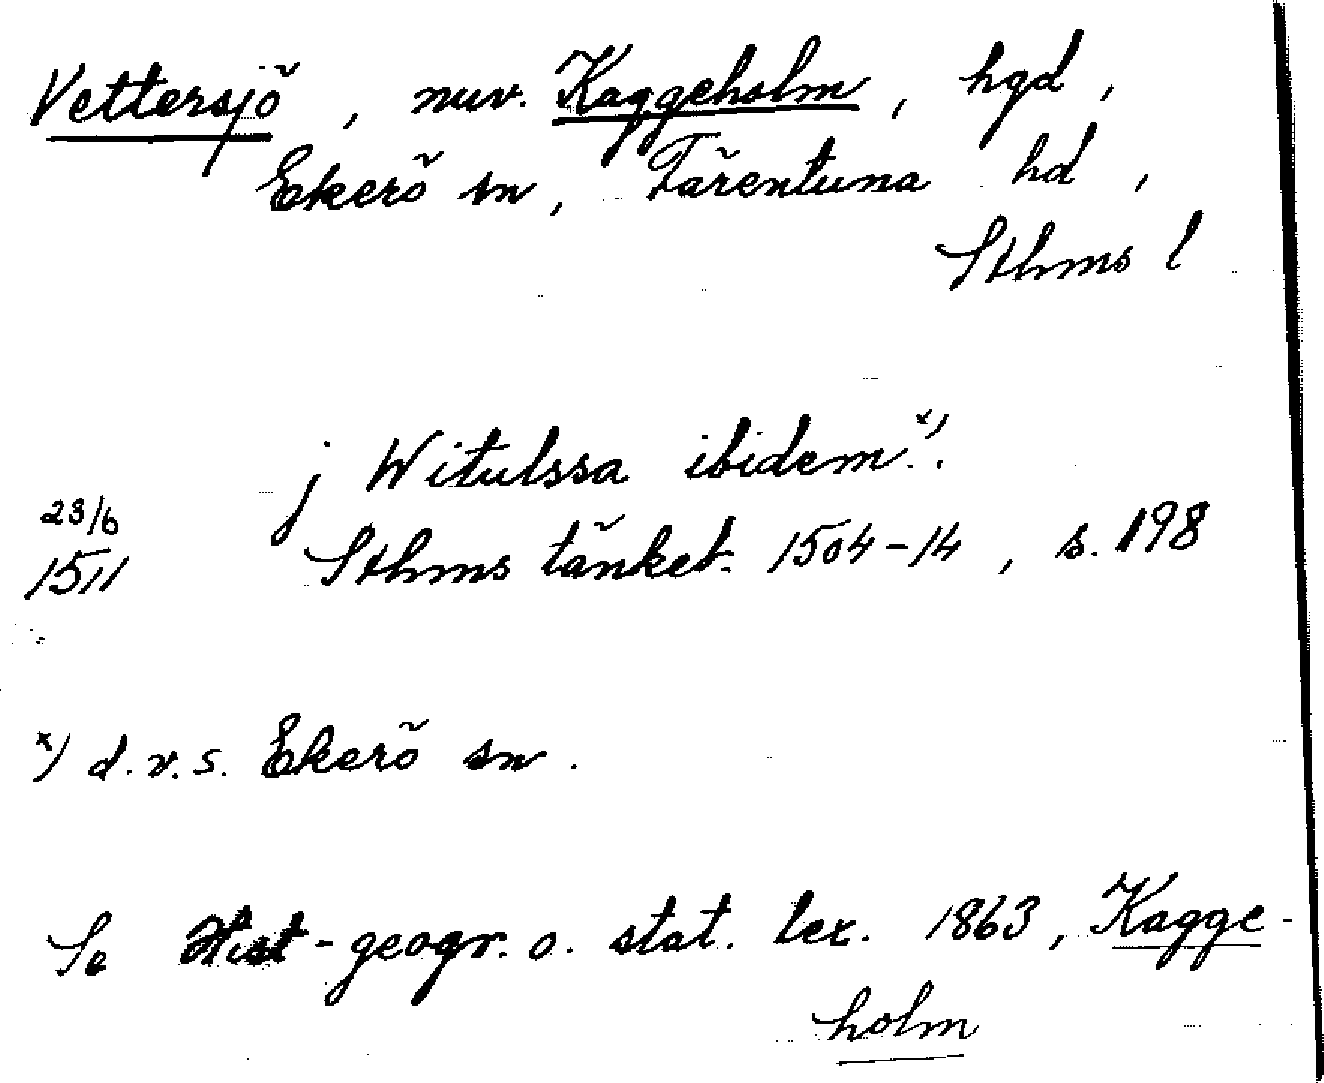 Vettersjö, nuv. Kaggeholm, hgd,
Ekerö sn, Färentuna hd,
Sthms l
j Witulssa ibidem x).
23/6
1511
Sthms tänkeb. 1504-14, s. 198
x) d.v.s. Ekerö sn.
Se Hist-geogr. o. stat. lex. 1863, Kagge-
holm